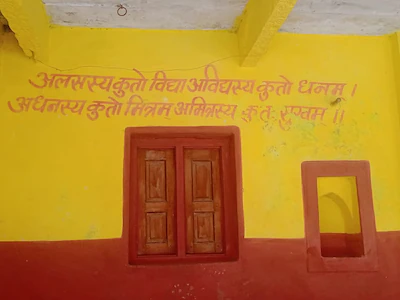 अलसस्य कुतो विद्या अविद्यस्य कुतो धनम ।
अधनस्य कुतो मित्रम अमित्रस्य कुतः सुखम ॥